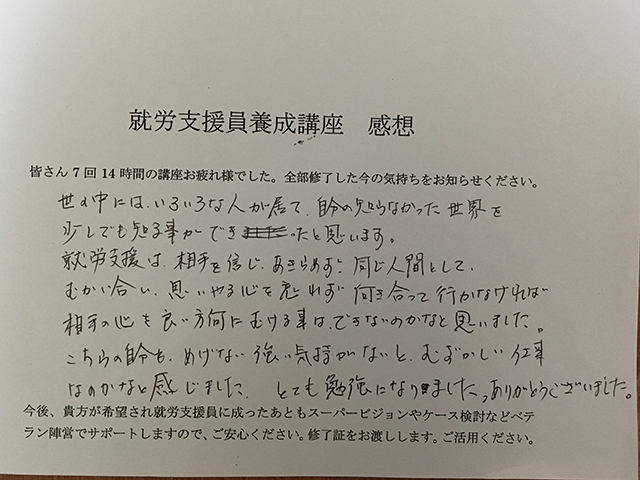 就労支援員養成講座 感想
皆さん7回14時間の講座お疲れ様でした。全部修了した今の気持ちをお知らせください。
世の中には、いろいろな人が居て、自分の知らなかった世界を
少しでも知る事ができたと思います。
就労支援は、相手を信じ、あきらめず、同じ人間として、
むかい合い、思いやる心を忘れず 向き合って行かなければ
相手の心を良い方向にむける事は、できないのかなと思いました。
こちらの自分も、めげない強い気持がないと、むずかしい仕事
なのかなと感じました。 とても勉強になりました。ありがとうございました。
今後、貴方が希望され就労支援員に成ったあともスーパービジョンやケース検討などベテ
ラン陣営でサポートしますので、ご安心ください。修了証をお渡しします。ご活用ください。